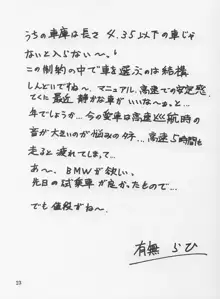 うちの車庫は長さ 4.35以下の車じゃ
ないと入らない〜。
この制約の中で車を選ぶのは結構
しんどいですね〜。マニュアル、高速での安定感、
てくに最近 静かな車がいいな〜。と...
年でしょうか...今の愛車は高速巡航時の
音が大きいのが悩みのタネ...高速5時間も
走ると疲れてしまって...
あ〜、BMWが欲しい、
先日の試乗車が良かったもので...
でも値段がね〜
有無 らひ
23